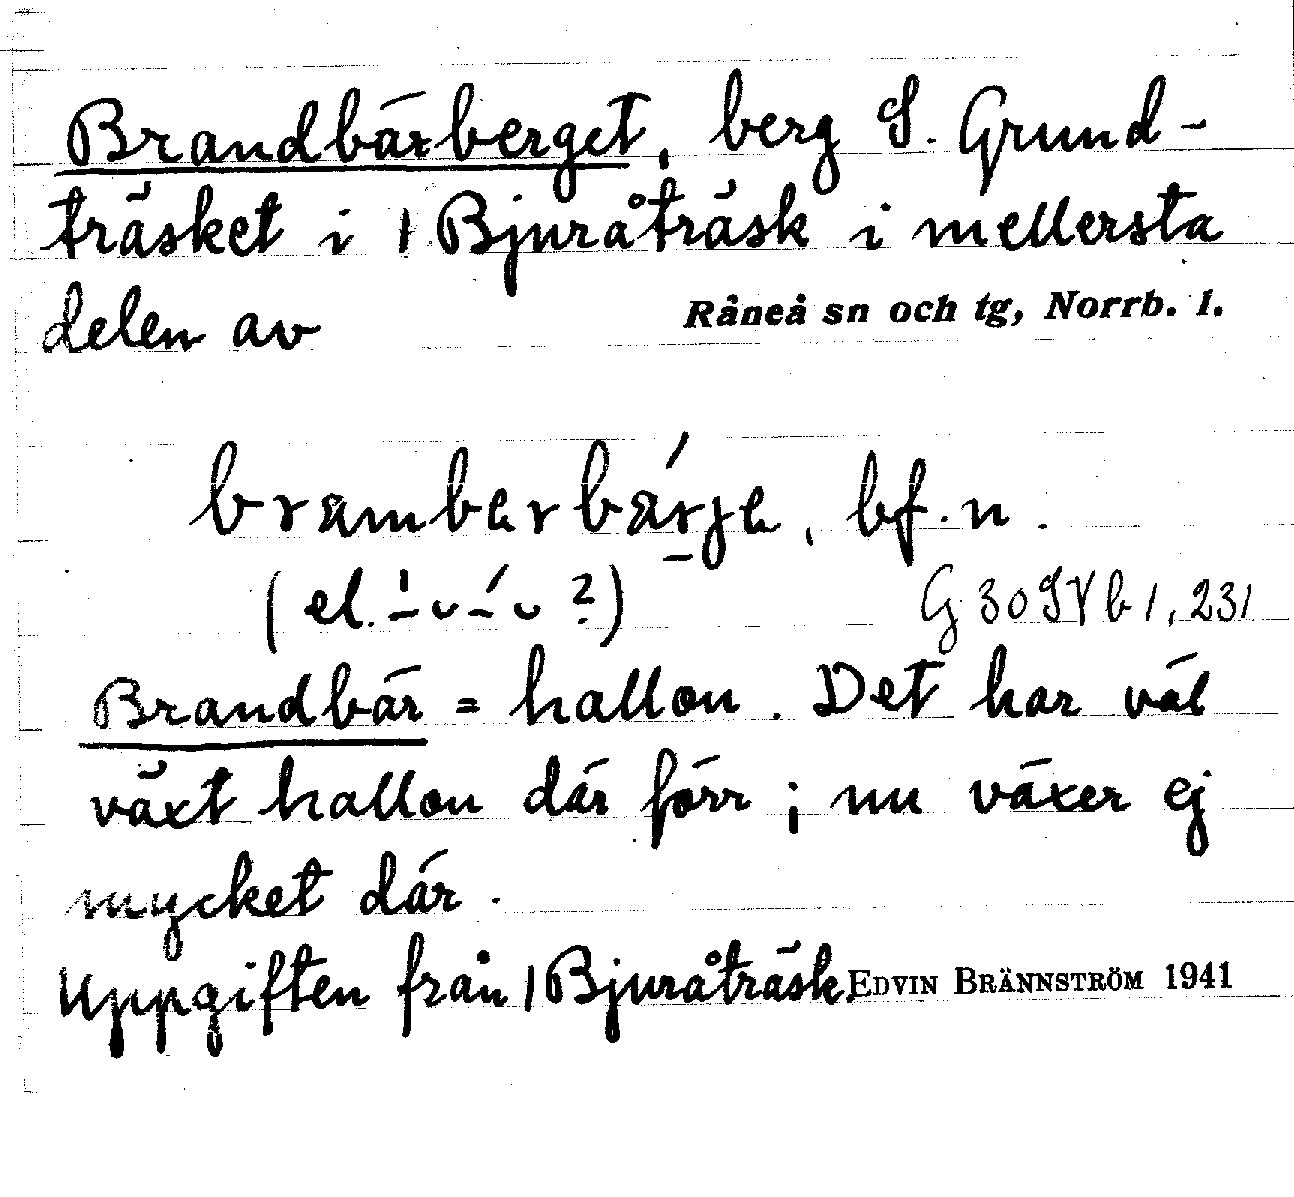 Brandbärberget, berg S. Grund-
träsket i | Bjuråträsk i mellersta
delen av Råneå sn och tg, Norrb. l.
brambarbárja, bf. n.
(el. –́ ᴗ –́ ᴗ ?) G 30 SV b 1, 231
Brandbär = hallon. Det har väl
växt hallon där förr; nu växer ej
mycket där.
Uppgiften från | Bjuråträsk. EDVIN BRÄNNSTRÖM 1941